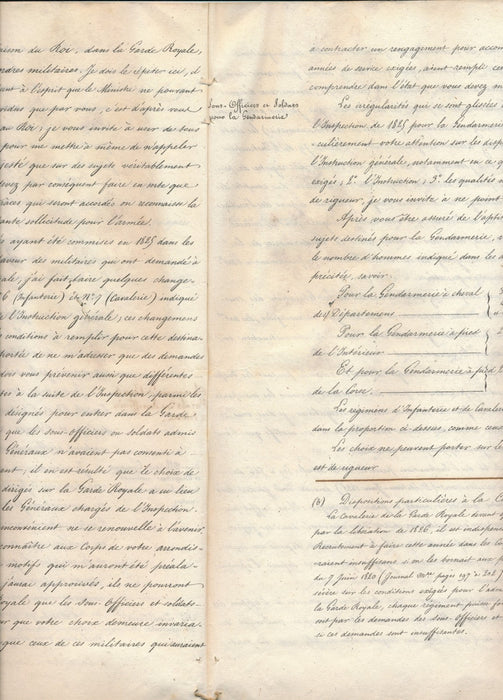 aison du Roi, dans la Garde Royale,
ordres militaires. Je dois le répéter ici, il
ant à l'esprit que le Ministre ne pourrant
vidus que par vous, c'est d'après vous
au Roi; je vous invite à user de tous
pour me mettre à même de n'appeler
jesté que sur des sujets véritablement
evez par conséquent faire en sorte que
râces qui seront accordés on reconnaisse la
ante sollicitude pour l'armée.
s ayant été commises en 1825 dans les
aveur des militaires qui ont demandé à
yale, j'ai fait faire quelques change-
6 (Infanterie) et N.º 7 (Cavalerie) indiqué
e l'Instruction générale; ces changemens
conditions à remplir pour cette destina-
portée de ne m'adresser que des demandes
dois vous prévenir aussi que différentes
tes à la suite de l'Inspection, parmi les
désignés pour entrer dans la Garde
que les sous-officiers ou soldats admis
Généraux n'avaient pas consenti à
ent; il en est résulté que le choix de
dirigés sur la Garde Royale a eu lieu
les Généraux chargés de l'Inspection.
inconvénient ne se renouvelle à l'avenir
connaître aux Corps de votre arrondis-
motifs qui m'auront été préala-
j'aurai approuvés, ils ne pourront
Royale que les Sous-Officiers et soldats
ur que votre choix demeure invaria-
que ceux de ces militaires qui auraient
Sous-Officiers et Soldats
pour la Gendarmerie
à contracter un rengagement pour accom
années de service exigées, aient rempli cette
comprendre dans l'état que vous devez m
Les irrégularités qui se sont glissées
l'Inspection de 1825 pour la Gendarmerie
culièrement votre attention sur les disp
l'Instruction générale, notamment en ce q
exigés; 2.º l'Instruction; 3.º les qualités
de rigueur, je vous invite à ne point
Après vous être assuré de l'apti
sujets destinés pour la Gendarmerie,
le nombre d'hommes indiqué dans les
précitée, savoir:
Pour la Gendarmerie à cheval
des Départemens
Pour la Gendarmerie à pied
de l'Intérieur
Et pour la Gendarmerie à pied
de la Corse.
Les régimens d'Infanterie et de Cavalerie
dans la proportion ci-dessus, comme ceux
Les choix ne peuvent porter sur le
est de rigueur.
(b) Dispositions particulières à la C
La Cavalerie de la Garde Royale devant
par la libération de 1826, il est indispen
Recrutement à faire cette année dans les
raient insuffisans si on les bornait aux p
du 7 Juin 1820 (Journal Mre. pages 197 à 202
sévère sur les conditions exigées pour l'adm
la Garde Royale, chaque régiment puisse four
ont par les demandes des Sous-Officiers et
si ces demandes sont insuffisantes.